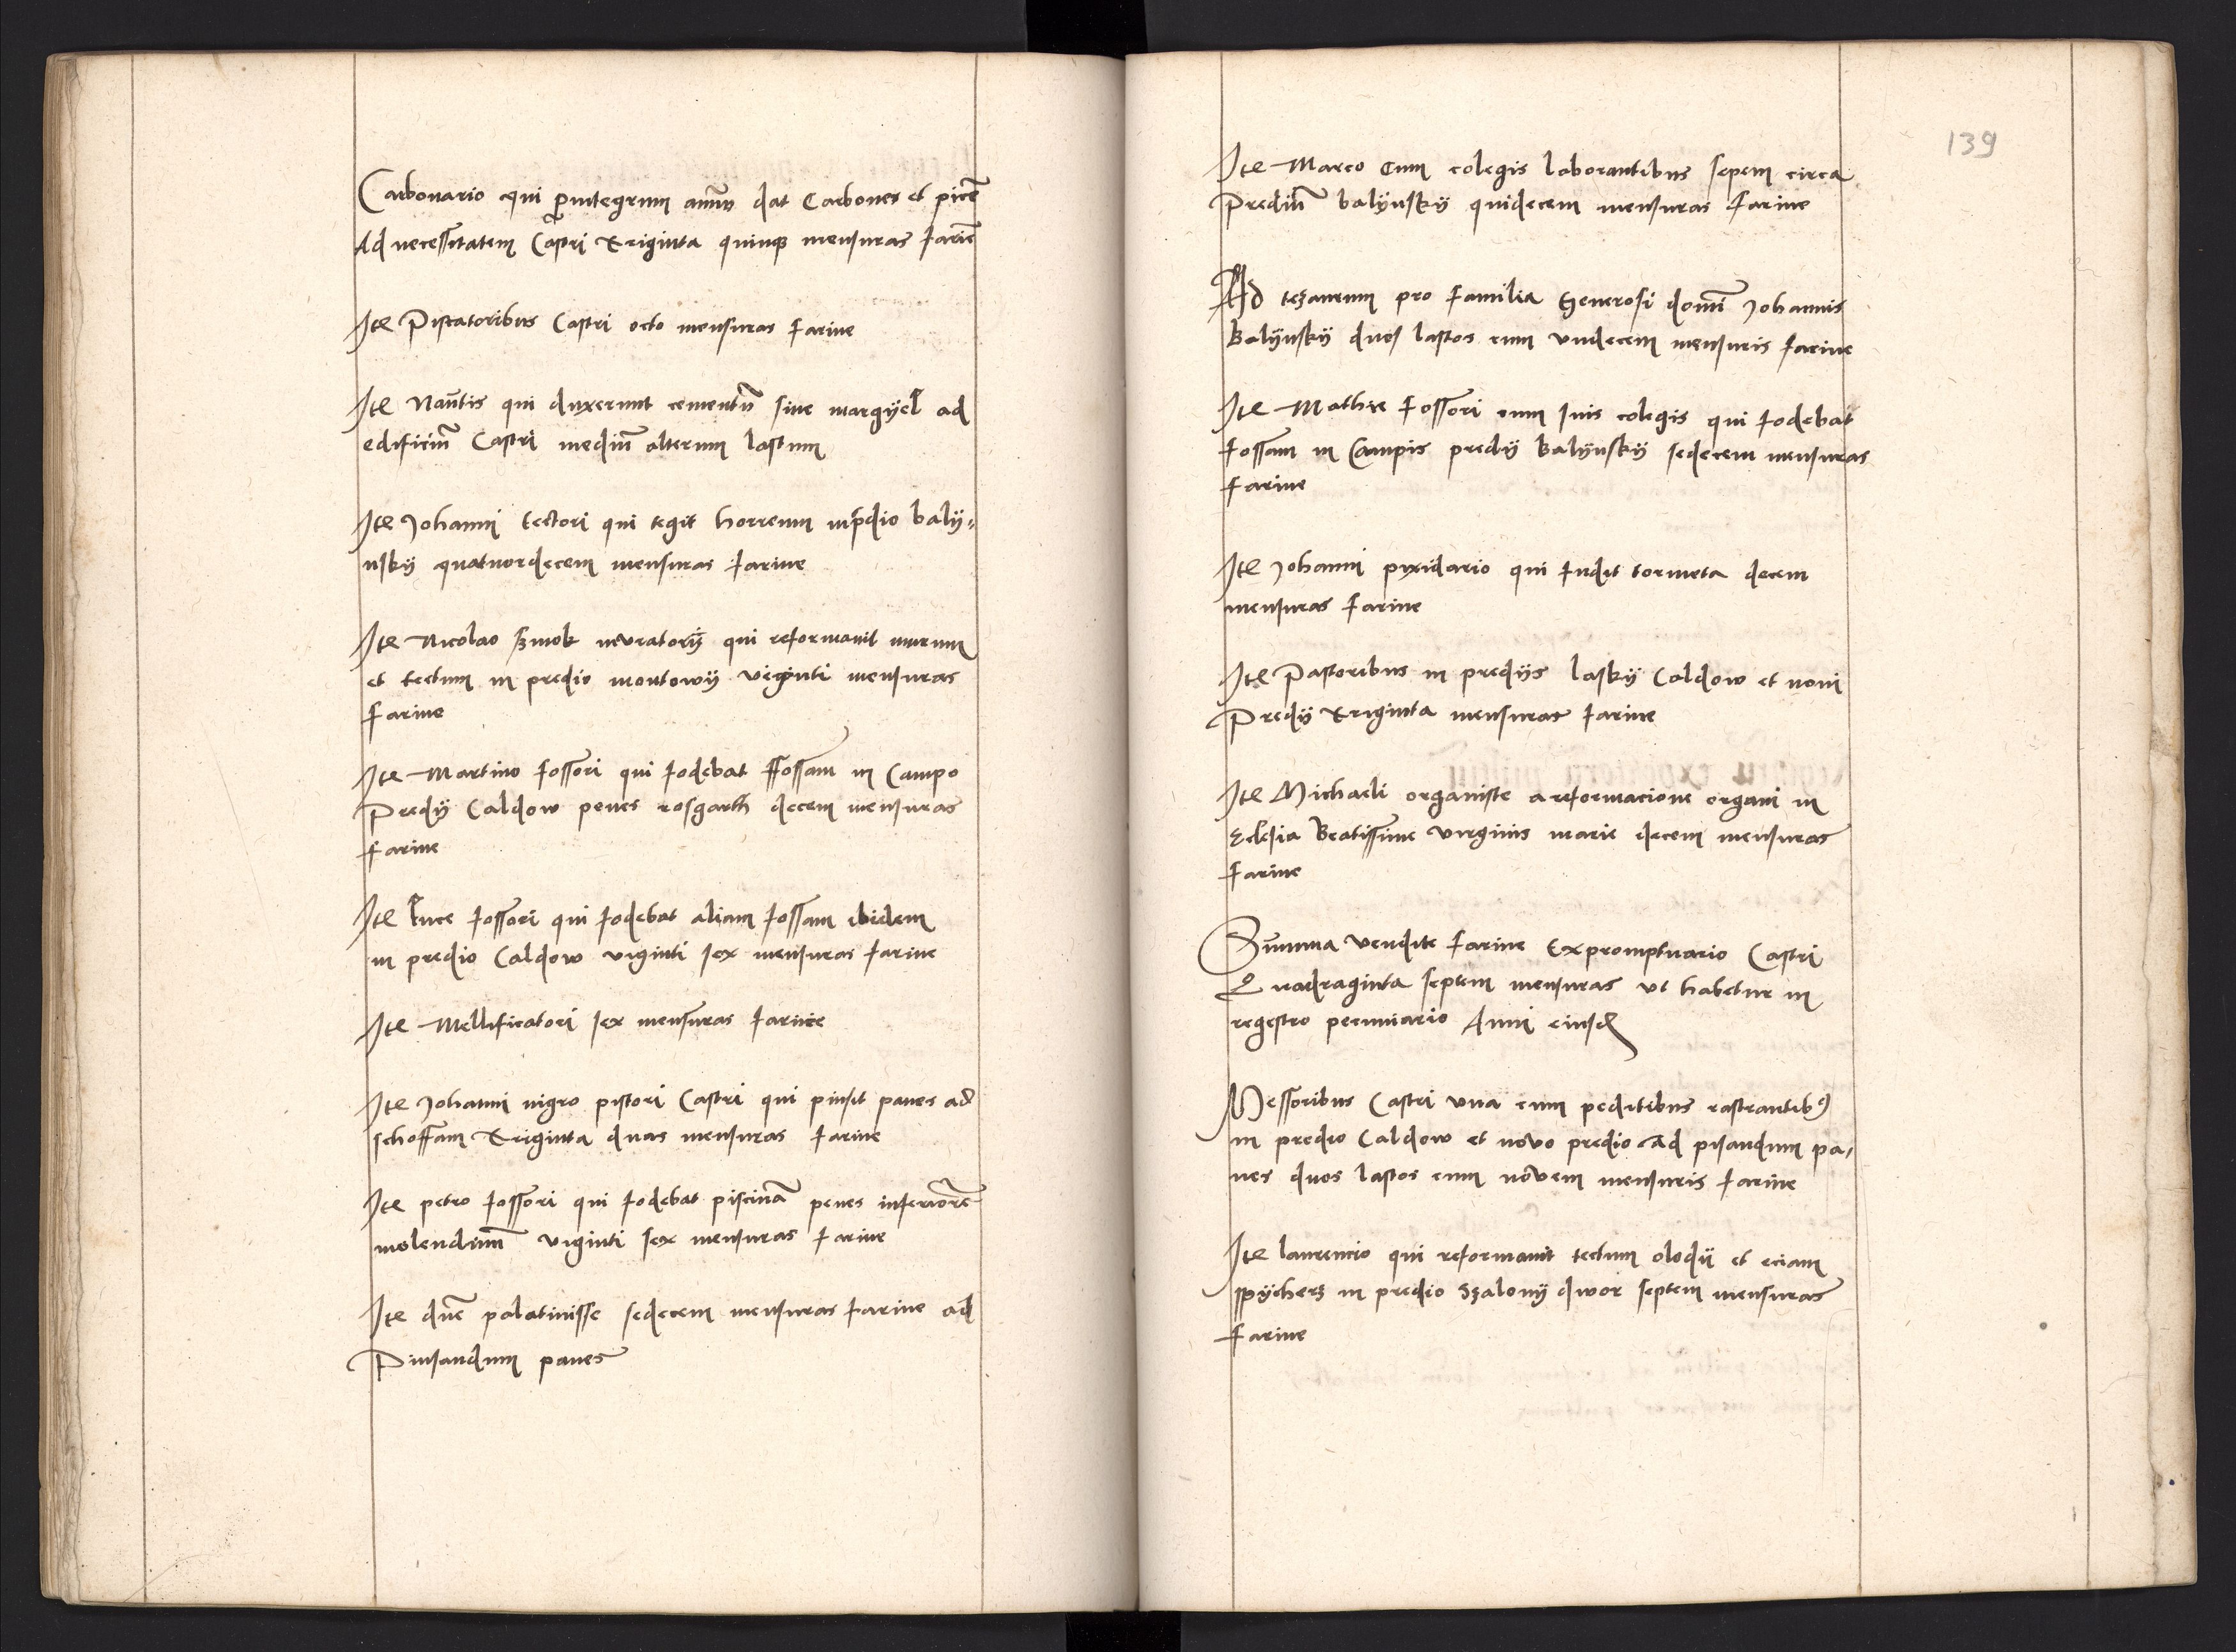 Carbonario qui p̱ integrum annũ dat Carbones et picẽ
Ad necessitatem Castri Triginta quinq̃ mensuras farinẽ
Itẽ Piscatoribus Castri octo mensuras farine
Itẽ Nautis qui duxerunt cementũ sive margyel ad
edificiũ Castri mediũ alterum lastum
Itẽ Johanni tectori qui tegit horreum in p̃dio baly⸗
nsky quatuordecem mensuras farine
Itẽ Nicolao szmok muratorÿ qui reformavit murum
et tectum in predio montowÿ viginti mensuras
farine
Itẽ Martino fossori qui fodebat ffossam in Campo
Predÿ Caldow penes rosgarth decem mensuras
farine
Itẽ Luce fossori qui fodebat aliam fossam ibidem
in predio Caldow viginti sex mensuras farine
Itẽ Mellificatori sex mensuras farine
Itẽ Johanni nigro pistori Castri qui pinsit panes ad
schoffam Triginta duas mensuras farine
Itẽ petro fossori qui fodebat piscinã penes inferiorẽ
molendinũ viginti sex mensuras farine
Itẽ dñe palatinisse sedecem mensuras farine ad
Pinsandum panes
139
Itẽ Marco Cum colegis laborantibus sepem circa
Prediũ balÿnskÿ quidecem mensuras farine
Ad tezaurum pro familia Generosi domĩ Johannis
Balÿnskÿ duos lastos cum vndecem mensuris farine
Itẽ Mathie fossori cum suis colegis qui fodebat
fossam in Campis predÿ balÿnskÿ sedecem mensuras
farine
Itẽ Johanni pixidario qui fudit tormeta decem
mensuras farine
Itẽ Pastoribus in predÿs laskÿ Caldow et novi
Predÿ Triginta mensuras farine
Itẽ Michaeli organiste a reformacione organi in
Eclesia Beatissime virginis marie decem mensuras
farine
Summa vendite farine Ex promptuario Castri
Quadraginta septem mensuras vt habetur in
regestro pecuniario Anni eiusd̃
Messoribus Castri vna cum peditibus rastrantib9
in predio Caldow et novo predio Ad pisandum pa⸗
nes duos lastos cum novem mensuris farine
Itẽ laurencio qui reformavit tectum olodÿ et eciam
spÿcherz in predio Szalony dwor septem mensuras
farine